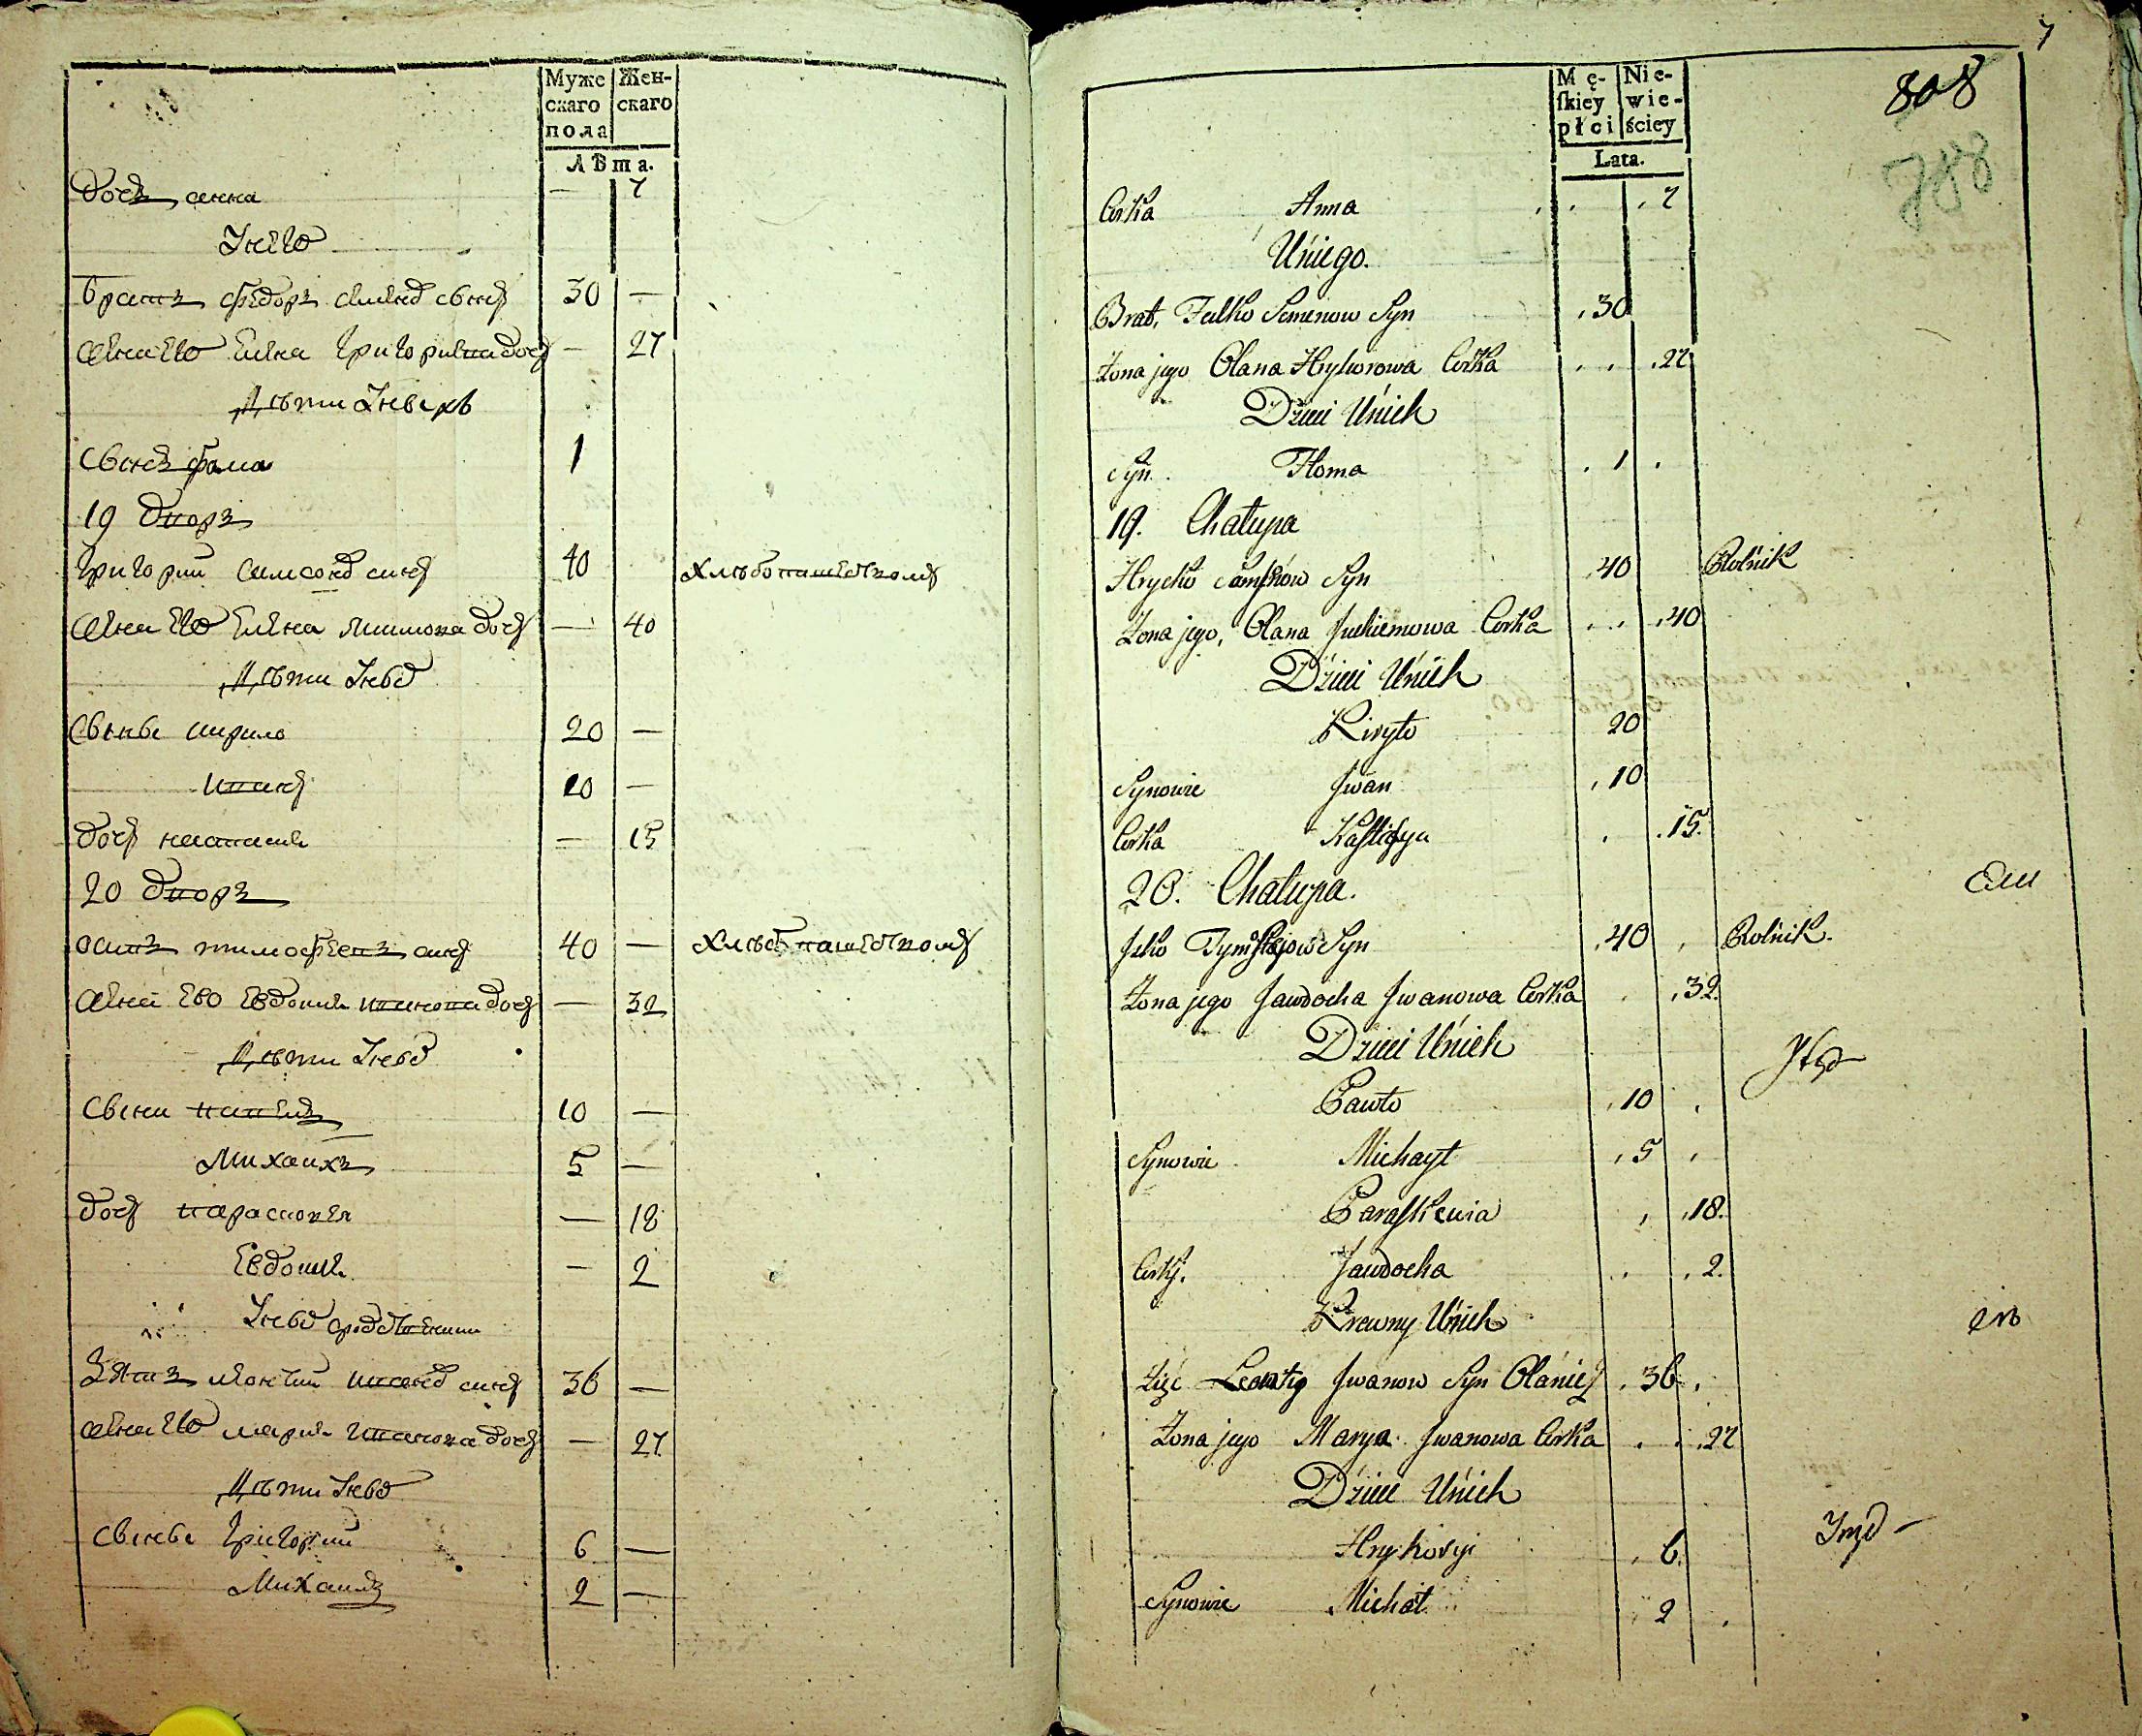 Муже
скаго
пола
Жен-
скаго
Лѣта.
дочь анна — 7
У него
братъ федоръ семенов сынъ 30 —
жена ево елена григорьива дочь — 27
дѣти У нихъ
сынъ фома 1
19 дворъ
Григорий самсонов сынъ 40 хлѣбопашествомъ
жена ево елена дочь — 40
дѣти У них
сыны кирило 20 —
иванъ 10 —
дочь настасия — 15
20 дворъ
осипъ тимофеевъ сынъ 40 — хлѣбопашествомъ
жена ево евдокия иванова дочь — 32
дѣти У них
сыны павелъ 10 —
михаилъ 5 —
дочь парасковея — 18
Евдокия — 2
У них сродственики
Зять леонтий иванов сынъ 36 —
жена ево мария иванова дочь — 27
дѣти У них
сыны Григорий 6 —
Михаилъ 2 —
7
808
788
Mę-
ſkiey
płci
Nie-
wie-
ściey
Lata.
Corka Anna 7
U niego.
Brat, Fedko Semenow Syn 30
Żona jego Olana Hryhorowa Corka 27
Dzieci U nich
Syn Homa 1
19. Chałupa
Hrycko Samsonow Syn 40 Rolnik
Żona jego, Olana Juchimowa Corka 40
Dzieci U nich
Kiryło 20
Synowie Jwan 10
Corka Nastasya 15.
20. Chałupa.
Jsko Tymofiejow Syn 40 Rolnik.
Żona jego Jawdocha Jwanowa Corka 32.
Dzieci U nich
Pawło 10
Synowie Michaył 5
Paraskewia 18.
Corki. Jawdocha 2.
Krewny U nich
Zięć Leontiy Jwanow Syn 36
Żona jego Marya Jwanowa Corka 27
Dzieci U nich
Hryhoryi 6.
Synowie Michał 2